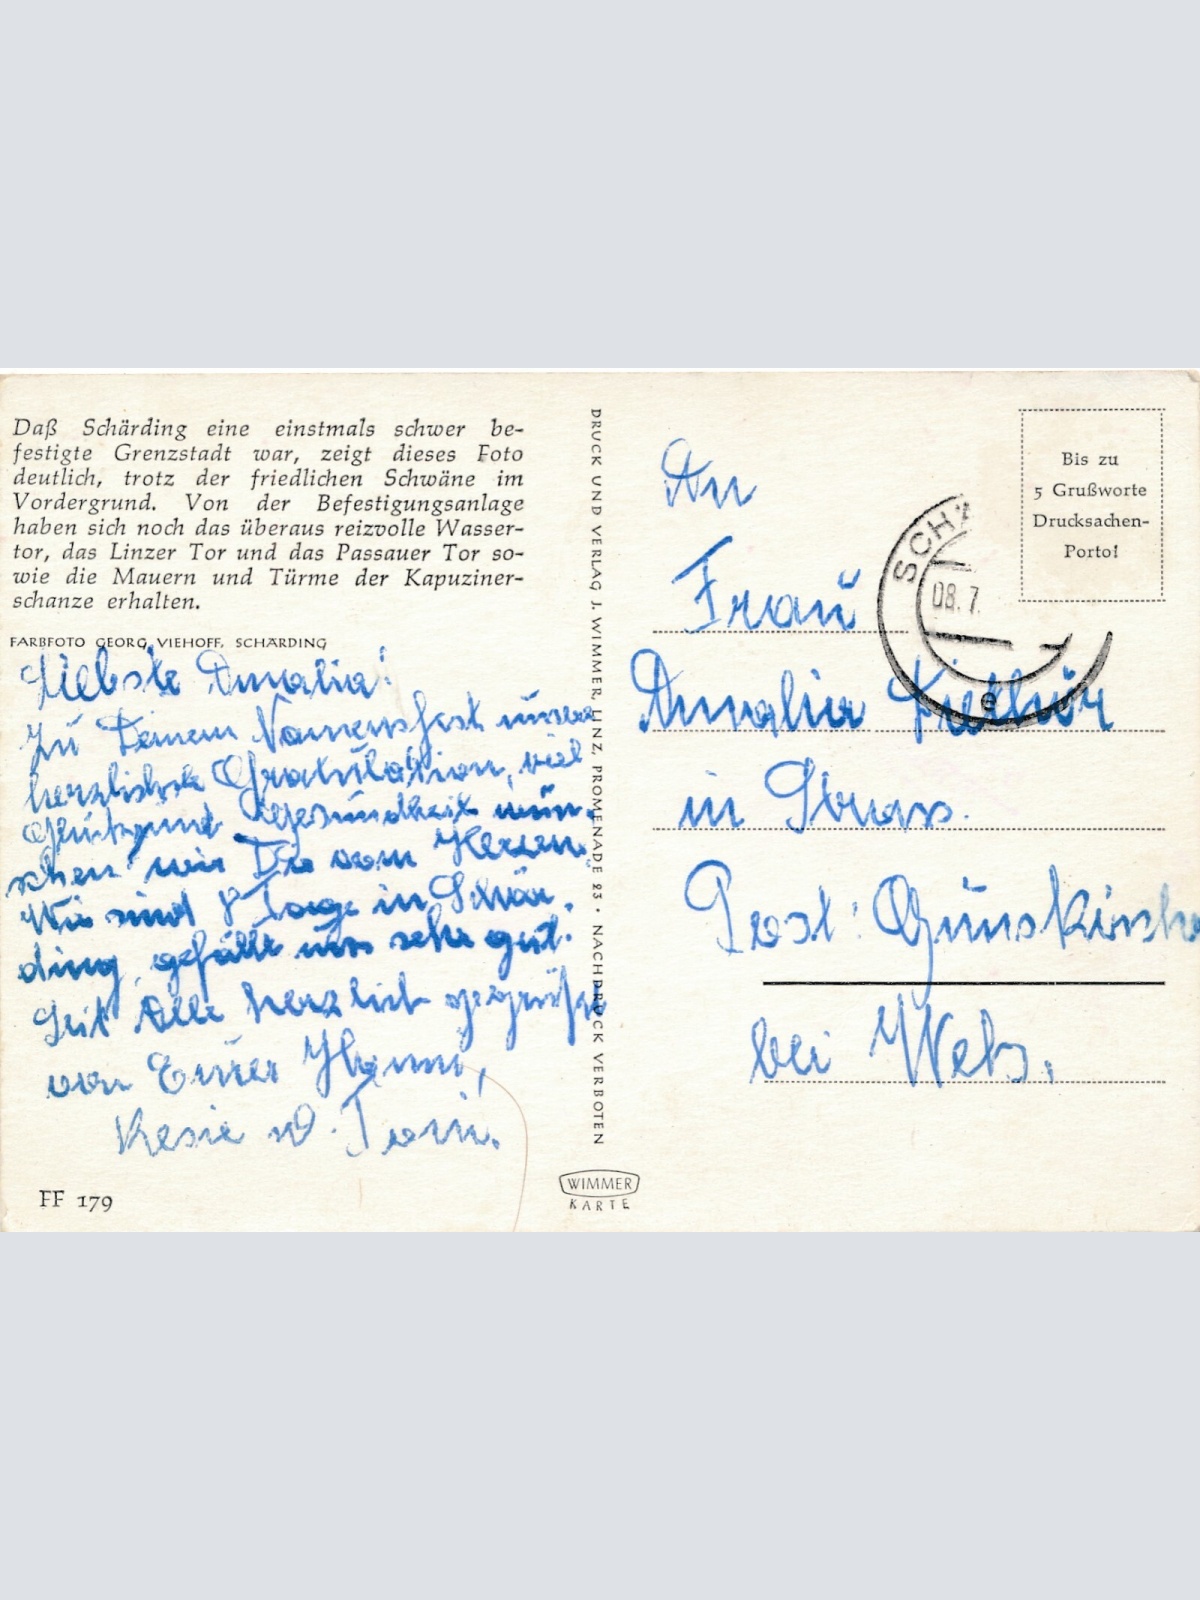 Daß Schärding eine einstmals schwer be-
festigte Grenzstadt war, zeigt dieses Foto
deutlich, trotz der friedlichen Schwäne im
Vordergrund. Von der Befestigungsanlage
haben sich noch das überaus reizvolle Wasser-
tor, das Linzer Tor und das Passauer Tor so-
wie die Mauern und Türme der Kapuziner-
schanze erhalten.
FARBFOTO GEORG VIEHOFF, SCHÄRDING
Liebste Amalia!
Zu Deinem Namensfest unsere
herzlichste Gratulation, viel
Glück und Gesundheit wün-
schen wir Dir vom Herzen.
Wir sind 8 Tage in Schär-
ding, gefällt uns sehr gut.
Seit Alle herzlich gegrüßt
von Eurer
Resie u. Toni.
FF 179
DRUCK UND VERLAG J. WIMMER, LINZ, PROMENADE 23 · NACHDRUCK VERBOTEN
WIMMER
KARTE
Bis zu
5 Grußworte
Drucksachen-
Porto!
SCHÄ
08.7.
e
An
Frau
Amalia
in Strass.
Post: Gunskirche
bei Wels.